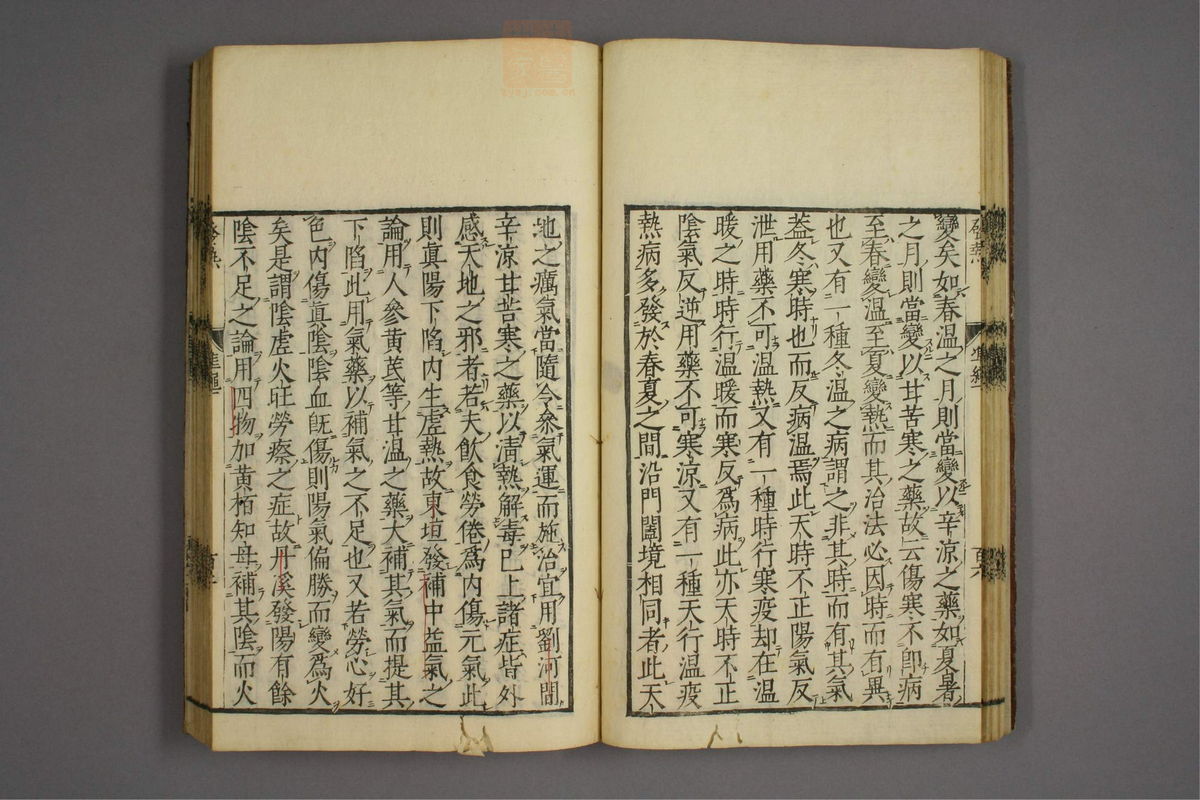 變矣如春温之月則當變以辛涼之藥如夏暑
之月則當變以甘苦寒之藥故云傷寒不即病
至春變温至夏變熱而其治法必因時而有異
也又有一種冬温之病謂之非其時而有其氣
蓋冬寒時也而反病温焉此天時不正陽氣反
泄用藥不可温熱又有一種時行寒疫却在温
暖之時時行温暖而寒反爲病此亦天時不正
陰氣反逆用藥不可寒涼又有一種天行温疫
熱病多發於春夏之間沿門闔境相同者此天
地之癘氣當隨令參氣運而施治宜用劉河間
辛涼甘苦寒之藥以清熱解毒已上諸症皆外
感天地之邪者若夫飲食勞倦爲内傷元氣此
則真陽下陷内生虛熱故東垣發補中益氣之
論用人參黃芪等甘温之藥大補其氣而提其
下陷此用氣藥以補氣之不足也又若勞心好
色内傷真陰陰血既傷則陽氣偏勝而變爲火
矣是謂陰虛火旺勞瘵之症故丹溪發陽有餘
陰不足之論用四物加黃栢知母補其陰而火